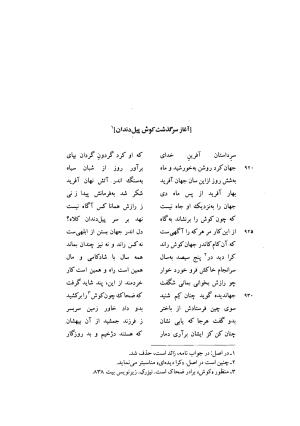 [آغاز سرگذشت کوش پیل‌دندان]۱
سرداستان آفرین خدای که او کرد گردون گردان بپای
۹۲۰ جهان کرد روشن به‌خورشید و ماه برآور روز از شبان سیاه
به‌شش روز ازاین‌سان جهان آفرید به‌سنگ اندر آتش نهان آفرید
بهار آفرید و به ماه تموز شکر شد به‌فرمانش پیدا ز نی
جهان را به‌نزدیک او جاه نیست ز رازش همانا کس آگاه نیست
که چون کوش را برنشاند به‌گاه نهد بر سر پیل‌دندان کلاه؟
۹۲۵ از این کار مر هر که را آگهی‌ست دل اندر جهان بستن از ابلهی‌ست
که آن کام کاندر جهان کوش راند نه کس راند و نه نیز چندان بماند
کرا دید در۲ پنج سیصد به‌سال همه سال با شادکامی و مال
سرانجام خاکش فرو خورد خوار همین است راه و همین است کار
چو رازش بخوانی بمانی شگفت خردمند از این، پند شاید گرفت
۹۳۰ جهاندیده گوید چنان کم شنید که ضحاک چون کوش۳ را برکشید
سوی چین فرستادش و خاوران بدو داد خاور زمین سربسر
بدو گفت هرجا که یابی نشان ز فرزند جمشید از آن بیهشان
چنان کن کز ایشان برآری دمار که هستند دژخیم و بد روزگار
۱ـ در اصل: در جواب نامه، زائد است، حذف شد.
۲ـ چنین است در اصل، «کرا دیده‌ای» مناسبتر می‌نماید.
۳ـ منظور «کوش» برادر ضحاک است. نیزرک. زیرنویس بیت ۸۳۸.